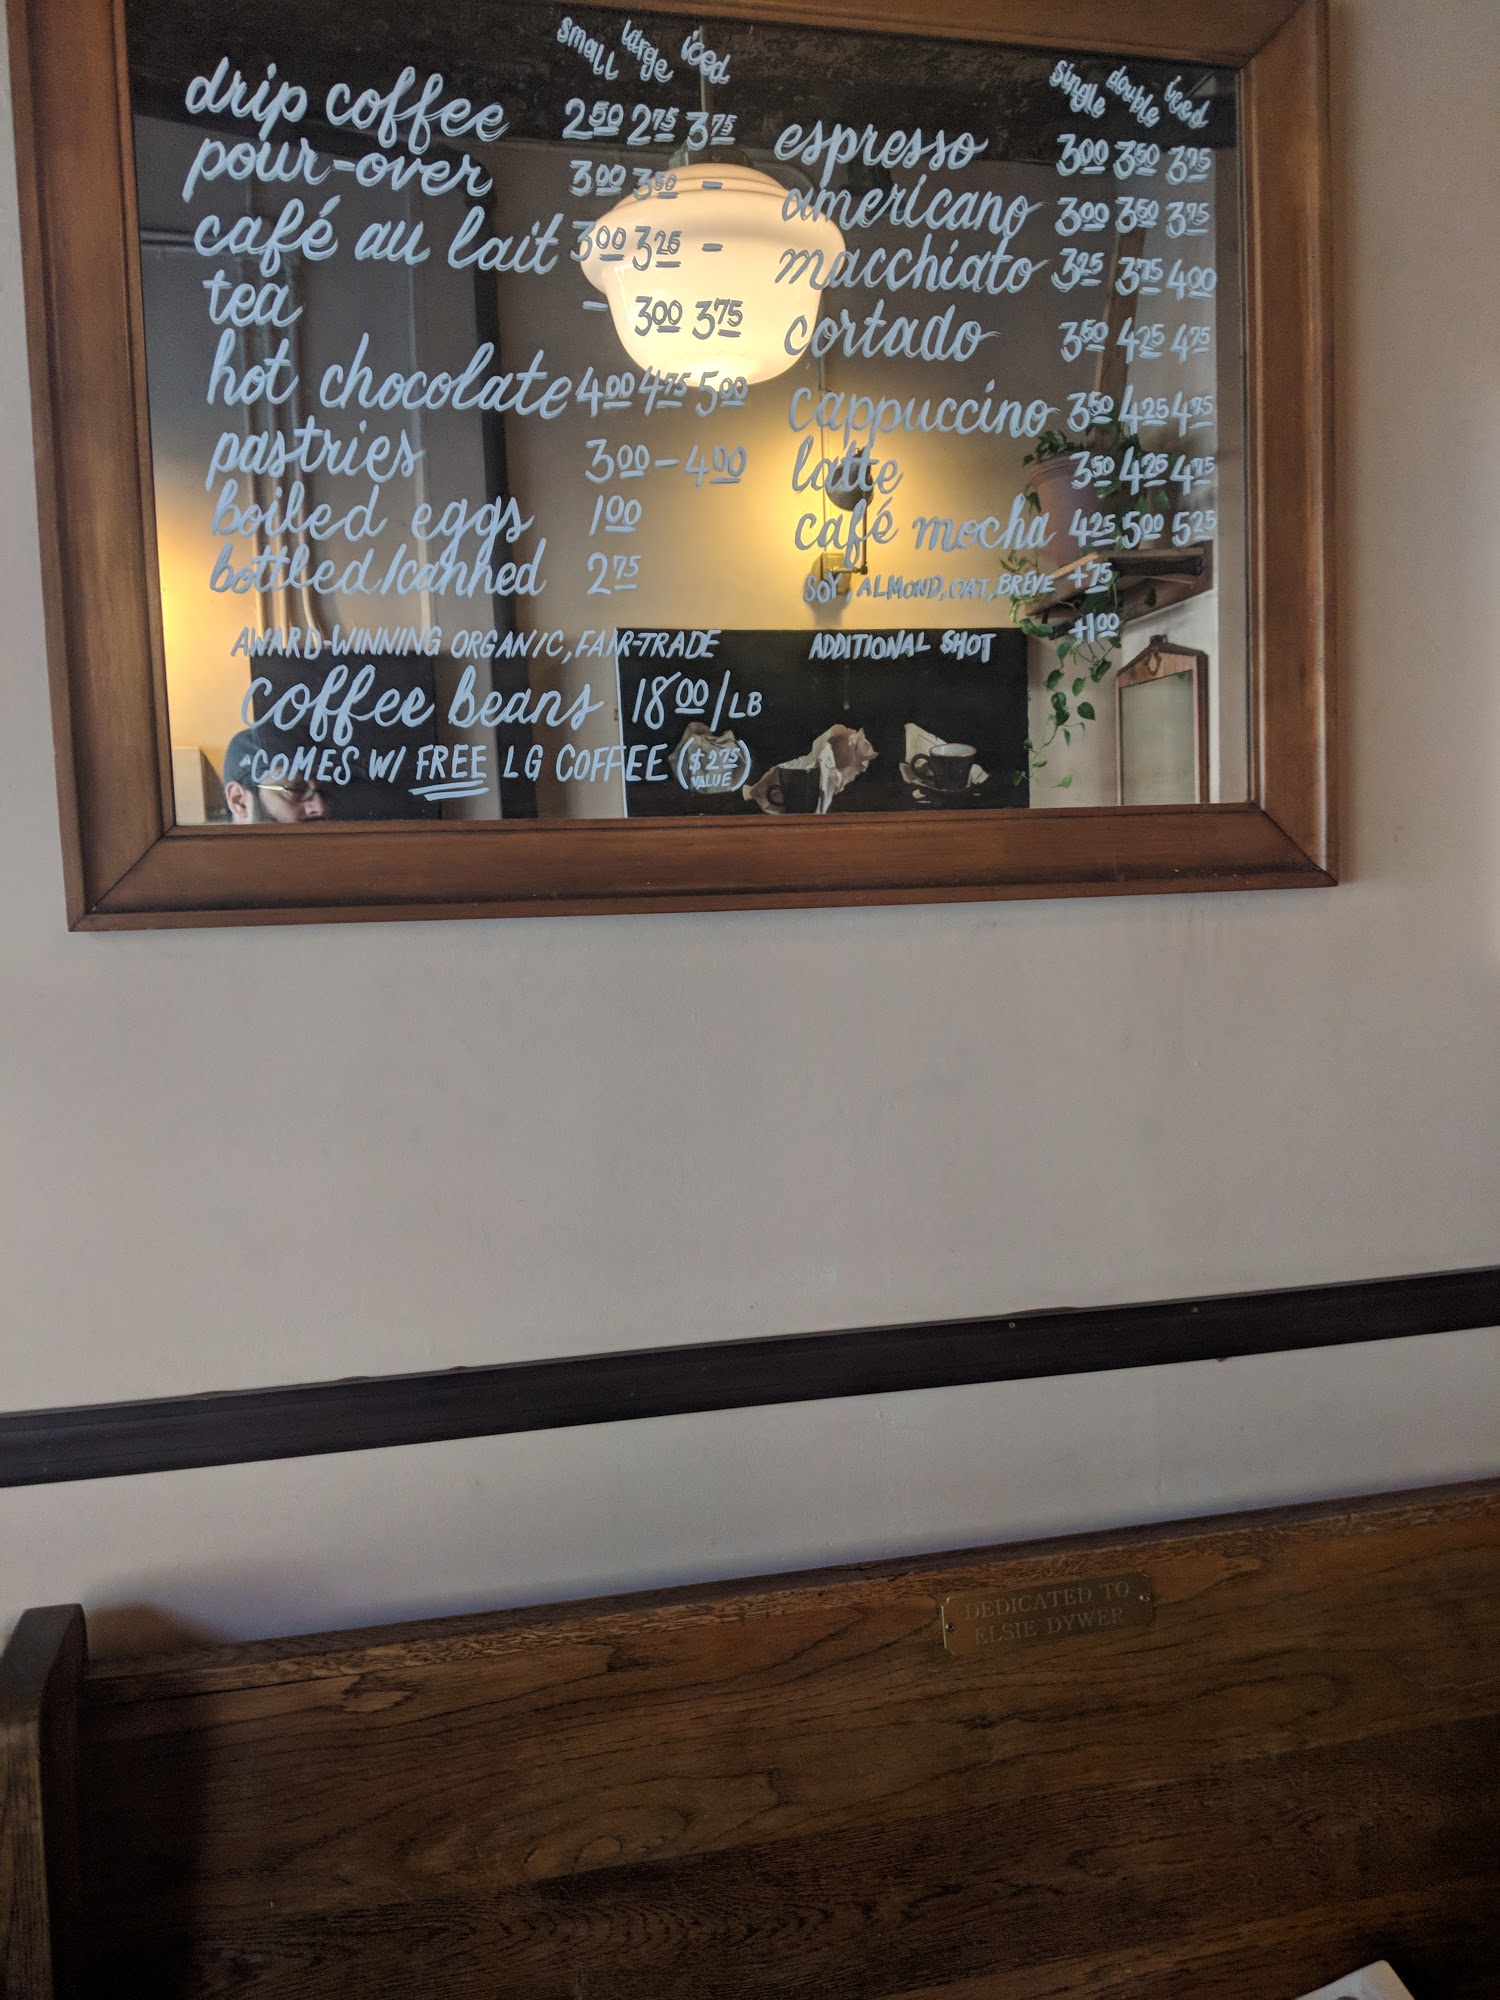 small large iced
drip coffee 2.50 2.75 3.75
pour-over 3.00 3.50 -
café au lait 3.00 3.25 -
tea - 3.00 3.75
hot chocolate 4.00 4.75 5.00
pastries 3.00-4.00
boiled eggs 1.00
bottled/canned 2.75
AWARD-WINNING ORGANIC, FAIR-TRADE
coffee beans 18.00/LB
COMES W/ FREE LG COFFEE ($2.75 VALUE)
single double iced
espresso 3.00 3.50 3.75
americano 3.00 3.50 3.75
macchiato 3.25 3.75 4.00
cortado 3.50 4.25 4.75
cappuccino 3.50 4.25 4.75
latte 3.50 4.25 4.75
café mocha 4.25 5.00 5.25
SOY, ALMOND, OAT, BREVE +.75
ADDITIONAL SHOT +1.00
DEDICATED TO
ELSIE DYWER